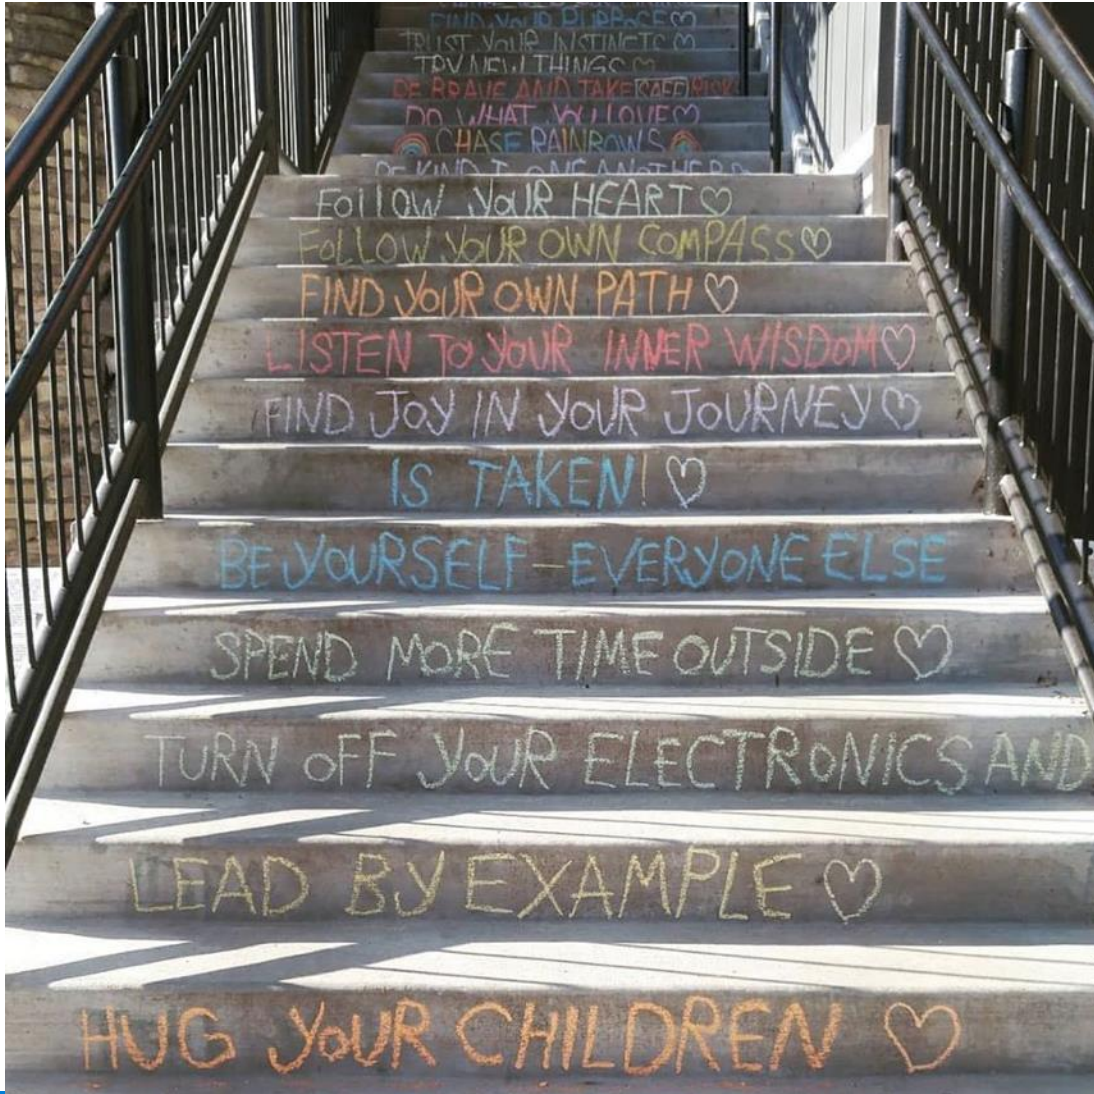 FIND YOUR PURPOSE
TRUST YOUR INSTINCTS
TRY NEW THINGS
BE BRAVE AND TAKE SAFE RISKS
DO WHAT YOU LOVE
CHASE RAINBOWS
BE KIND TO ONE ANOTHER
FOLLOW YOUR HEART
FOLLOW YOUR OWN COMPASS
FIND YOUR OWN PATH
LISTEN TO YOUR INNER WISDOM
FIND JOY IN YOUR JOURNEY
IS TAKEN!
BE YOURSELF - EVERYONE ELSE
SPEND MORE TIME OUTSIDE
TURN OFF YOUR ELECTRONICS AND
LEAD BY EXAMPLE
HUG YOUR CHILDREN